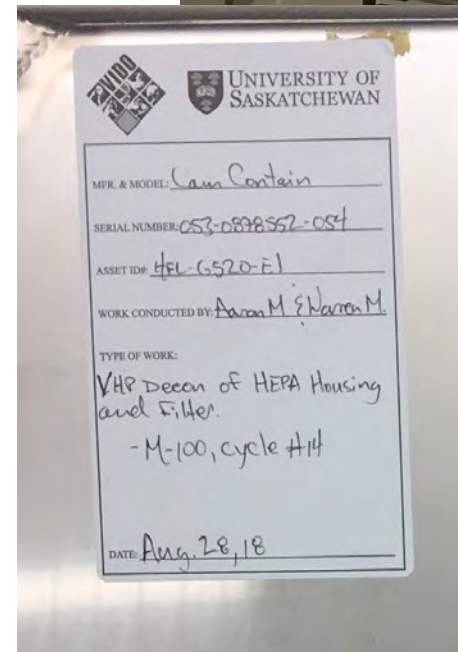 VIDO
UNIVERSITY OF
SASKATCHEWAN
MFR. & MODEL: Cam Contain
SERIAL NUMBER: 053-0898552-054
ASSET ID#: HFL-G520-E1
WORK CONDUCTED BY: Aaron M & Warren M.
TYPE OF WORK:
VHP Decon of HEPA Housing
and Filter.
- M-100, cycle #14
DATE: Aug. 28, 18